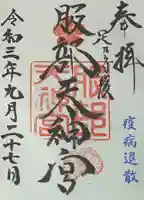 奉拝
足乃守護
服部天神宮
令和三年九月二十七日
疫病退散